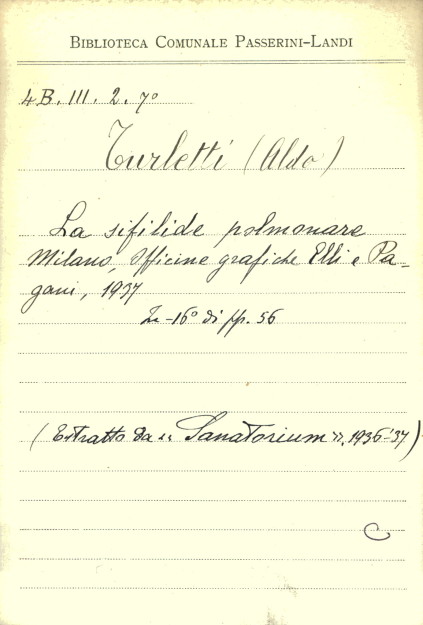 BIBLIOTECA COMUNALE PASSERINI-LANDI
4 B. III. 2. 7°
Turletti (Aldo)
La sifilide polmonare
Milano, Officine grafiche Elli e Pa-
gani, 1937
In-16° di pp. 56
(Estratto da « Sanatorium », 1936-'37)
C